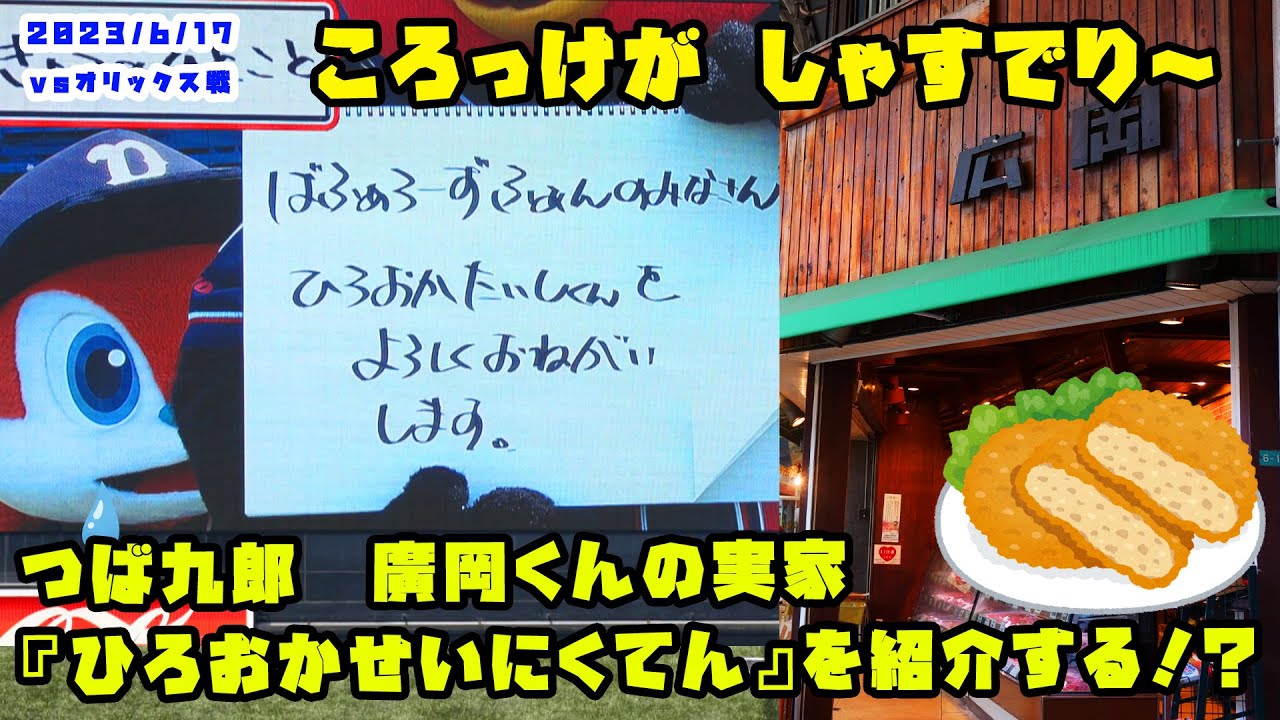 2023/6/17
vsオリックス戦
ころっけが しゃすでり~
広岡
ばふぁろーずふぁんのみなさん
ひろおかたいしくんを
よろしくおねがい
します。
つば九郎 廣岡くんの実家
『ひろおかせいにくてん』を紹介する!?